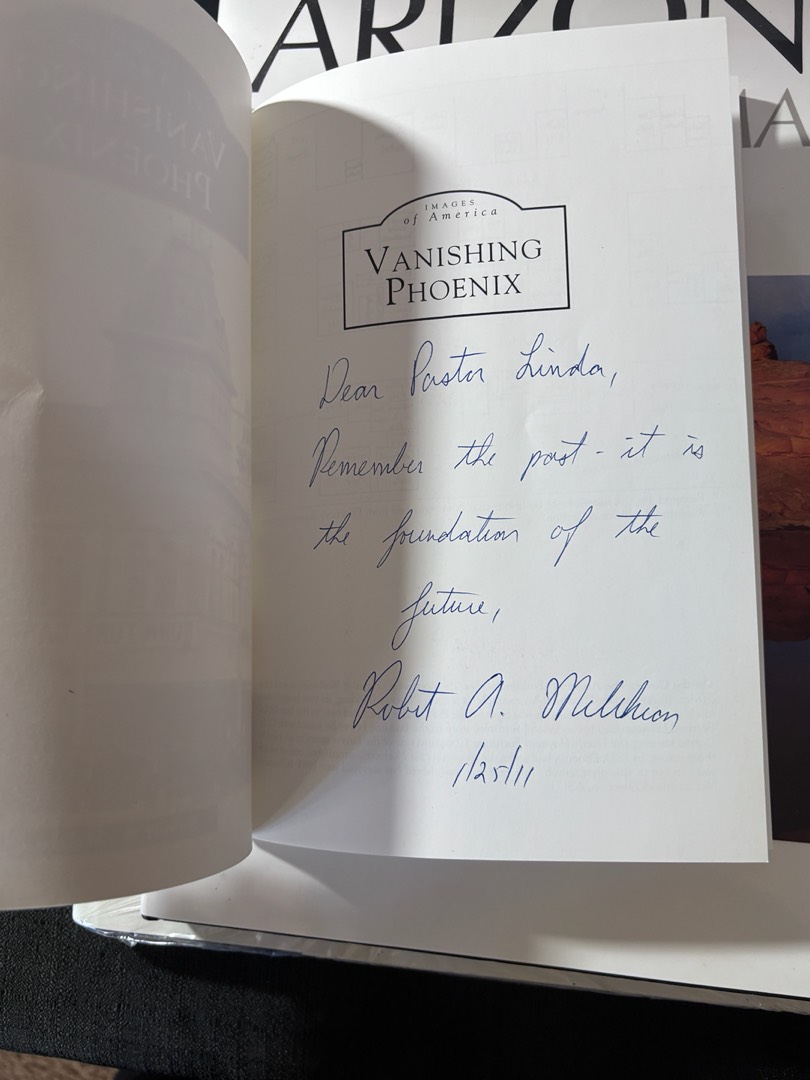 ARIZON
IMAGES
of America
VANISHING
PHOENIX
Dear Pastor Linda,
Remember the past - it is
the foundation of the
future,
Robert A. Melikian
1/25/11
VANISHING
PHOENIX